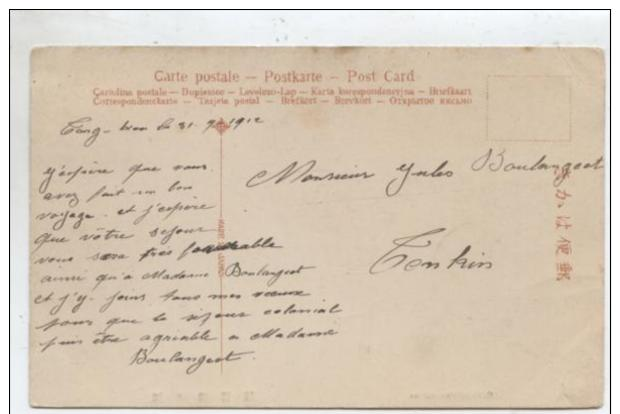 Carte postale — Postkarte — Post Card
Cartolina postale — Dopisnice — Levelezo-Lap — Karta korespondencyjna — Briefkaart
Correspondenzkarte — Tarjeta postal — Brefkort — Brevkort — Открытое письмо
le 31 1912
j'espère que vous
avez fait un bon
voyage. et j'espère
que vôtre sejour
vous sera très favorable
ainsi qu'a Madame Boulangeot
et j'y joins tous mes voeux
pour que le séjour colonial
puis être agréable a Madame
Boulangeot.
Monsieur Jules Boulangeot
Tonkin
きかは便郵